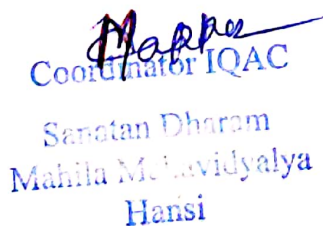 Coordinator IQAC
Sanatan Dharam
Mahila Mahavidyalya
Hansi